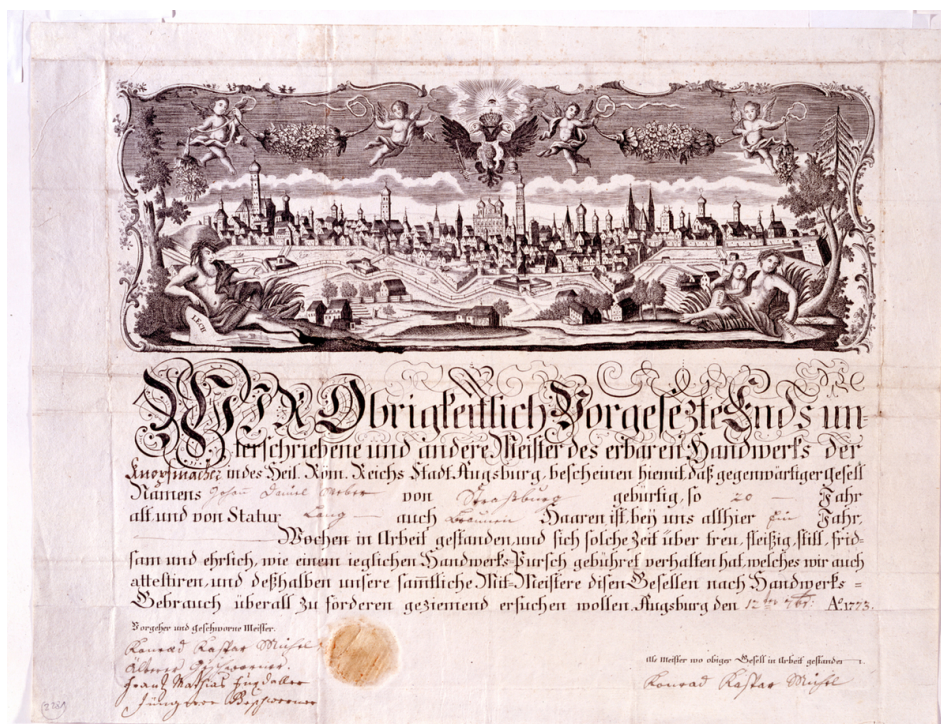 LECH
WIR Obrigkeitlich Vorgesezte Ends un-
terschriebene und andere Meister des erbaren Handwerks der
Knopfmacher in des Heil. Röm. Reichs Stadt Augsburg, bescheinen hiemit daß gegenwärtiger Gesell
Namens Johann Daniel von Straßburg gebürtig, so 20 Jahr
alt und von Statur Lang auch braunen Haaren ist, bey uns allhier Ein Jahr,
Wochen in Arbeit gestanden, und sich solche Zeit über treu, fleißig, still, frid-
sam und ehrlich, wie einem ieglichen Handwerks-Pursch gebühret verhalten hat, welches wir auch
attestiren, und deßhalben unsere samtliche Mit-Meistere disen Gesellen nach Handwerks=
Gebrauch überall zu förderen geziemend ersuchen wollen. Augsburg den 12 Ao. 1773.
Vorgeher und geschworne Meister.
Konrad Kaspar Michel
Älterer Geschworner.
Frantz Mathias
Jüngerer Geschworner
Als Meister wo obiger Gesell in Arbeit gestanden
Konrad Kaspar Michel